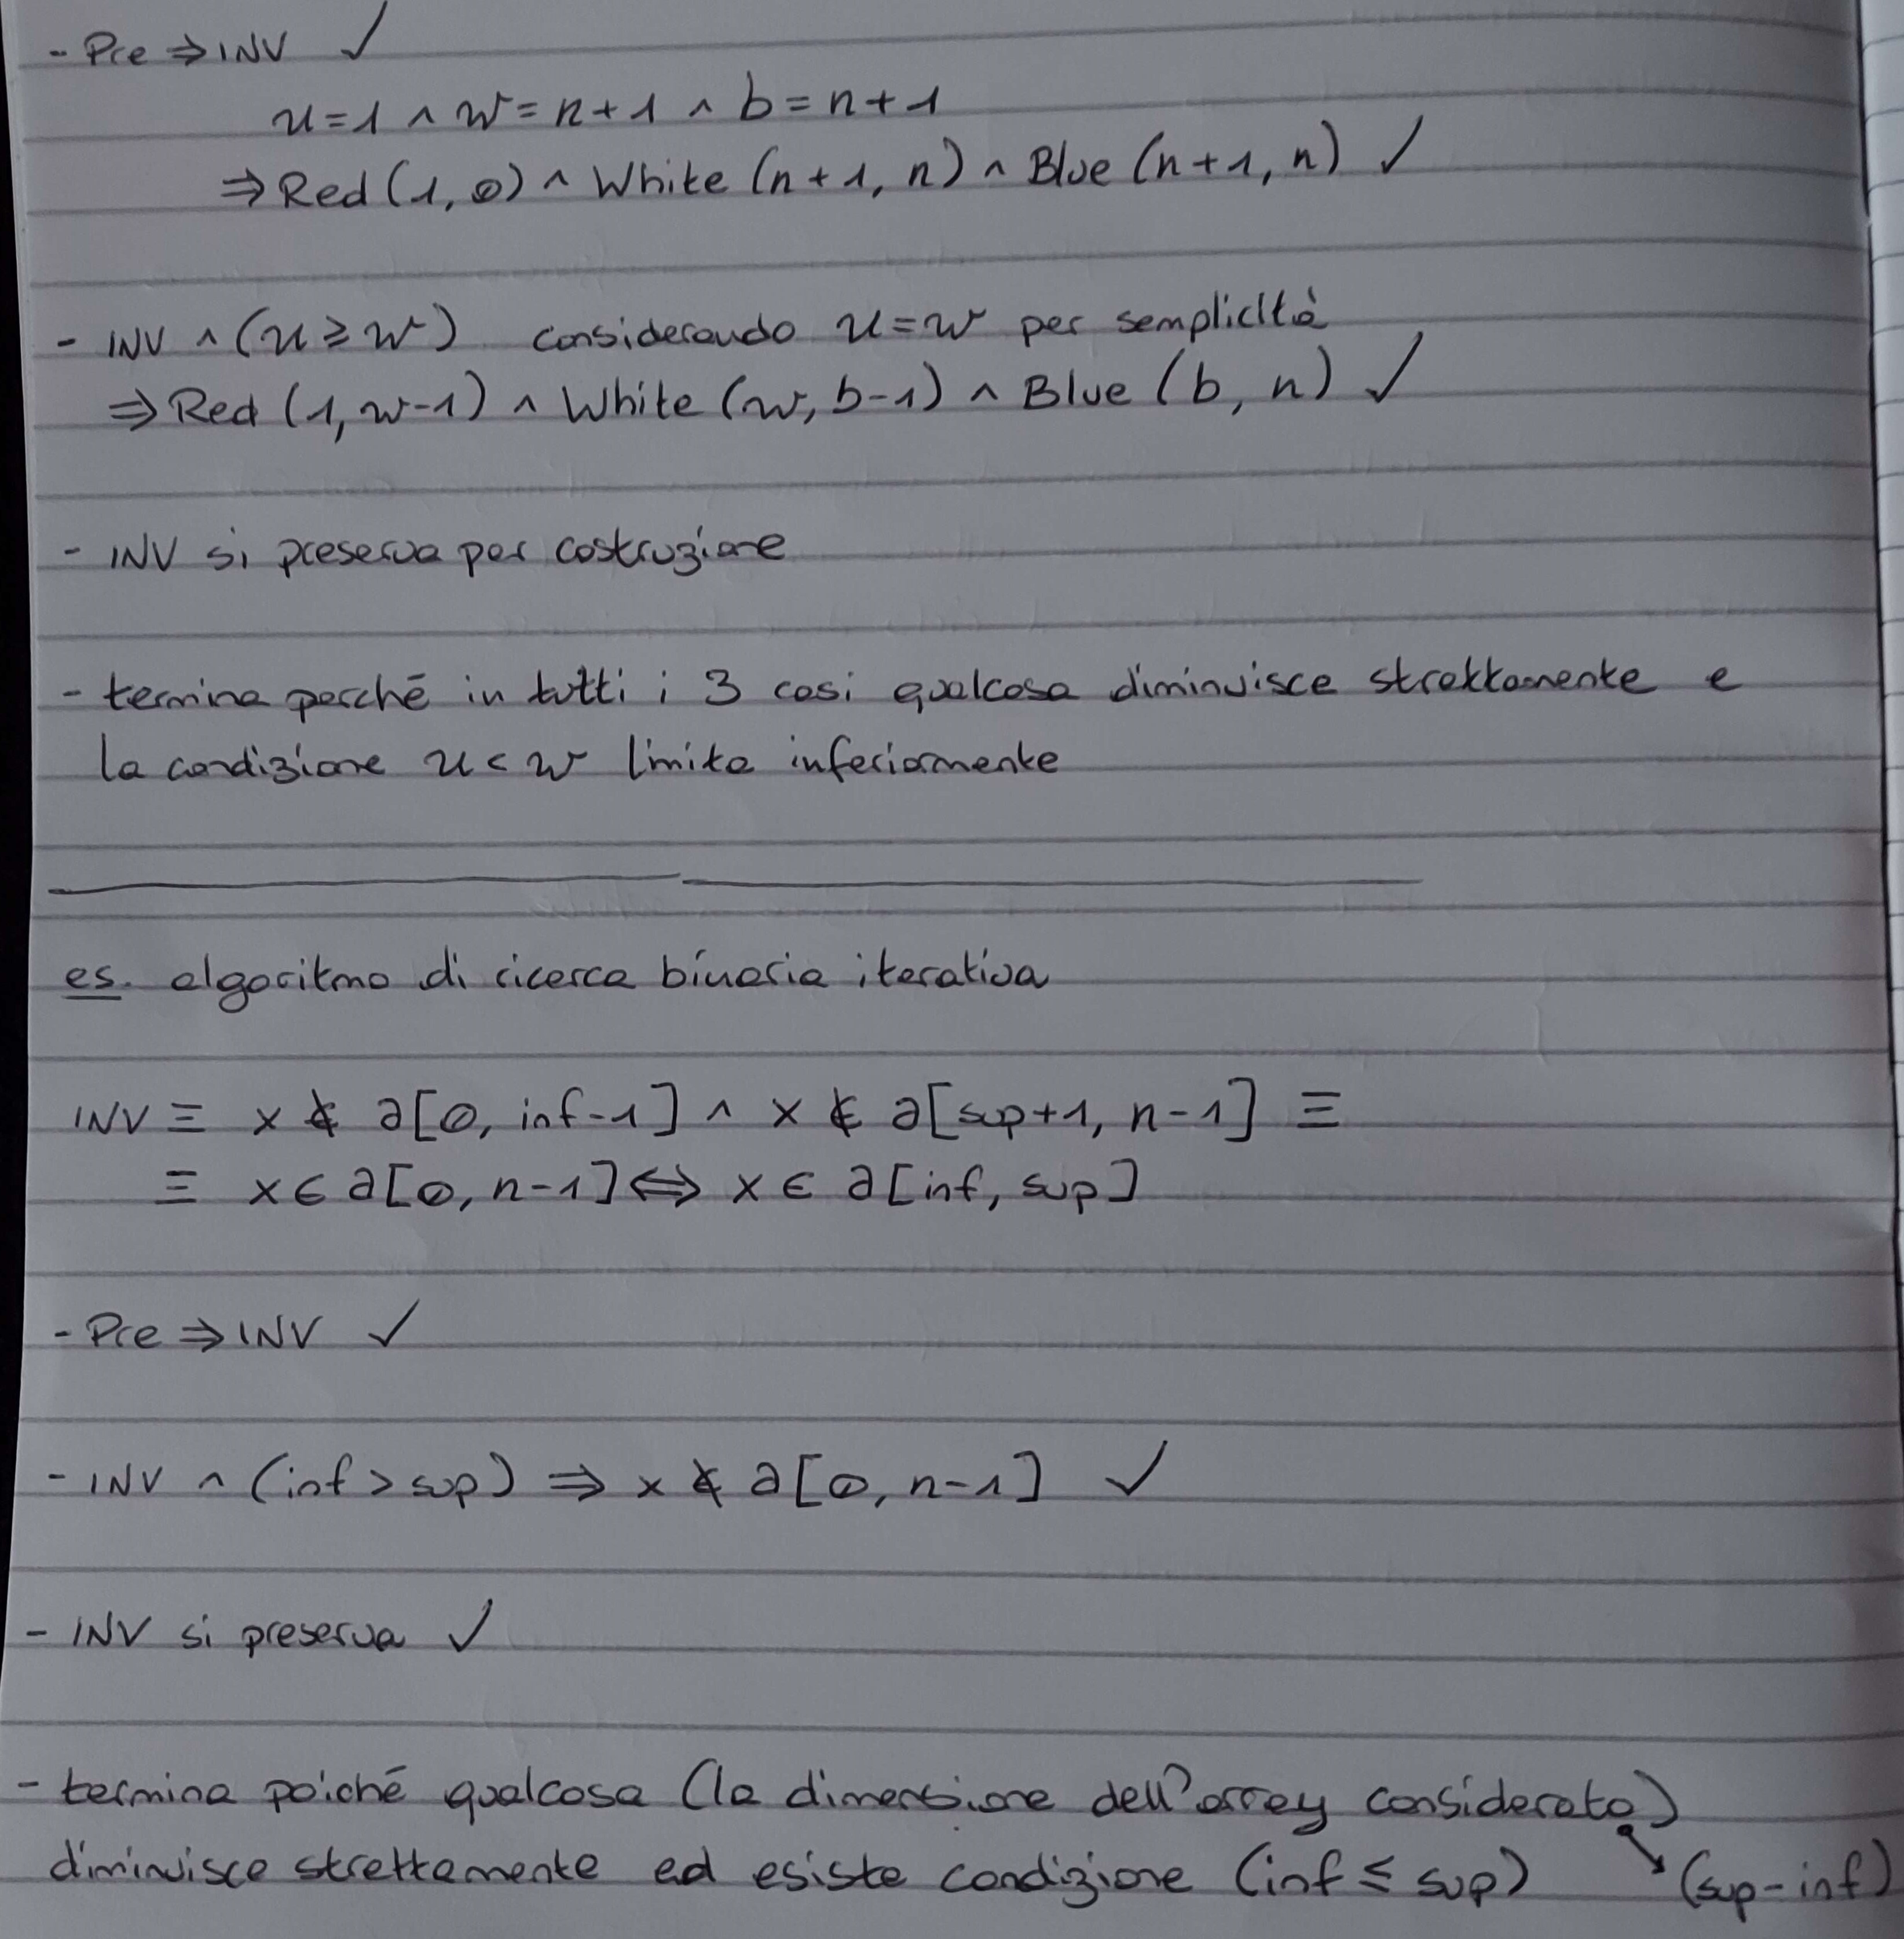 - Pre ⇒ INV ✓
u=1 ∧ w=n+1 ∧ b=n+1
⇒ Red (1, 0) ∧ White (n+1, n) ∧ Blue (n+1, n) ✓
- INV ∧ (u ≥ w) considerando u=w per semplicità
⇒ Red (1, w-1) ∧ White (w, b-1) ∧ Blue (b, n) ✓
- INV si preserva per costruzione
- termina perché in tutti i 3 casi qualcosa diminuisce strettamente e
la condizione u < w limita inferiormente
es. algoritmo di ricerca binaria iterativa
INV ≡ x ∉ a[0, inf-1] ∧ x ∉ a[sup+1, n-1] ≡
≡ x ∈ a[0, n-1] ⇔ x ∈ a[inf, sup]
- Pre ⇒ INV ✓
- INV ∧ (inf > sup) ⇒ x ∉ a[0, n-1] ✓
- INV si preserva ✓
- termina poiché qualcosa (la dimensione dell'array considerato)
diminuisce strettamente ed esiste condizione (inf ≤ sup) ↘ (sup-inf)